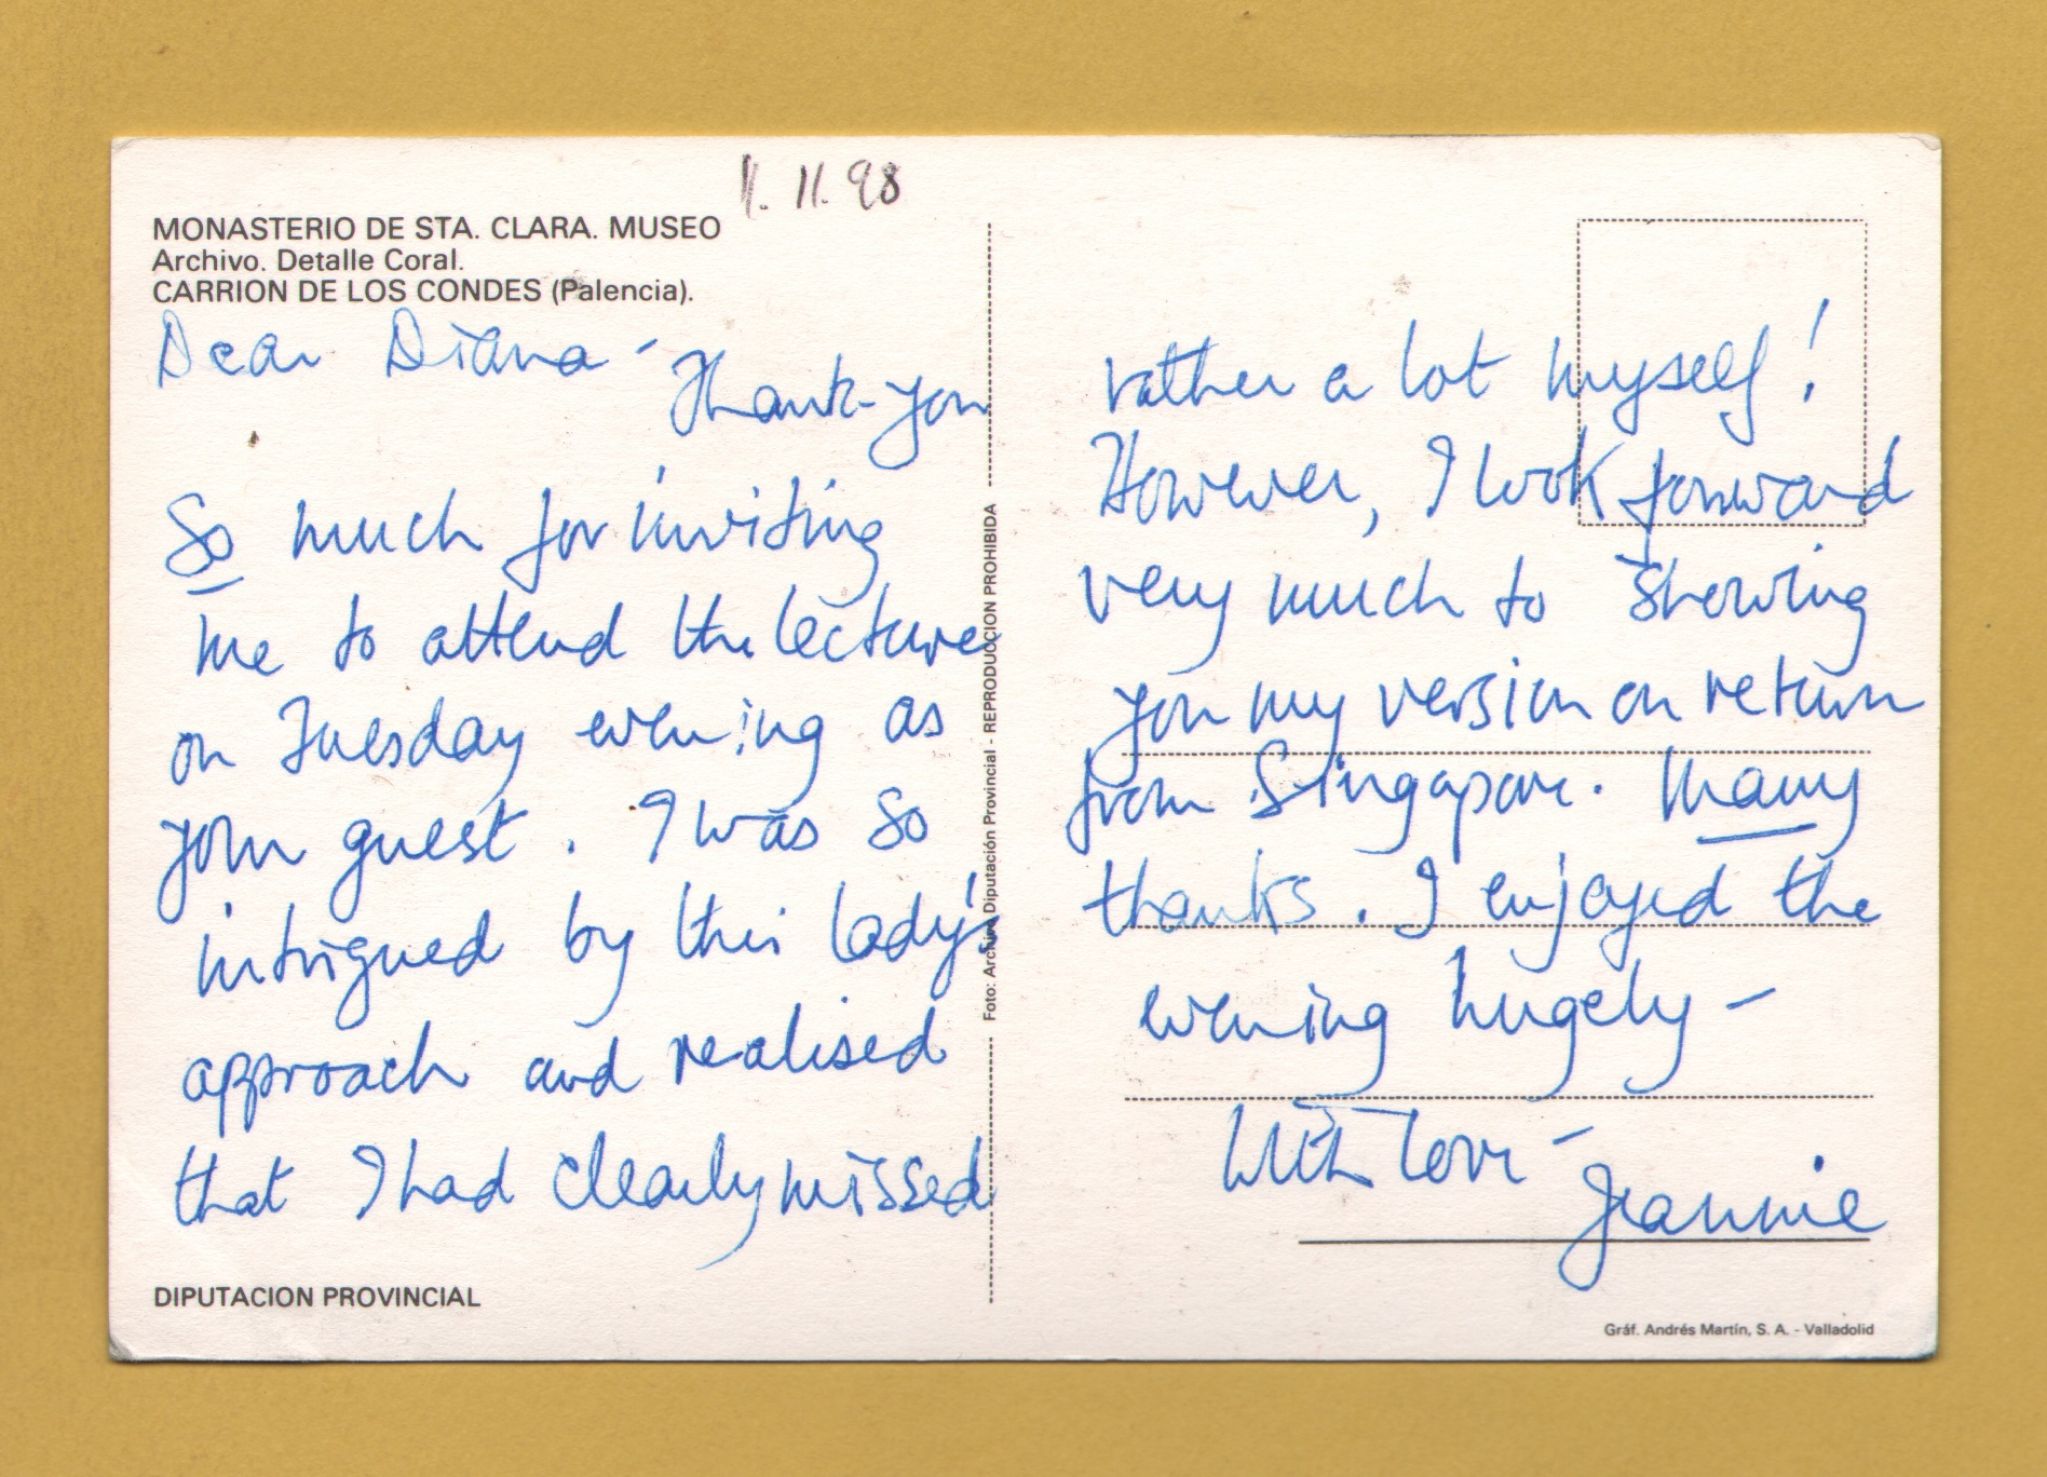 11.11.98
MONASTERIO DE STA. CLARA. MUSEO
Archivo. Detalle Coral.
CARRION DE LOS CONDES (Palencia).
Dear Diana -
Thank-you
so much for inviting
me to attend the lecture
on Tuesday evening as
your guest. I was so
intrigued by this lady's
approach and realised
that I had clearly missed
DIPUTACION PROVINCIAL
Foto: Archivo Diputación Provincial - REPRODUCCION PROHIBIDA
rather a lot myself!
However, I look forward
very much to showing
you my version on return
from Singapore. Many
thanks. I enjoyed the
evening hugely -
With love -
Jeannie
Gráf. Andrés Martín, S. A. - Valladolid